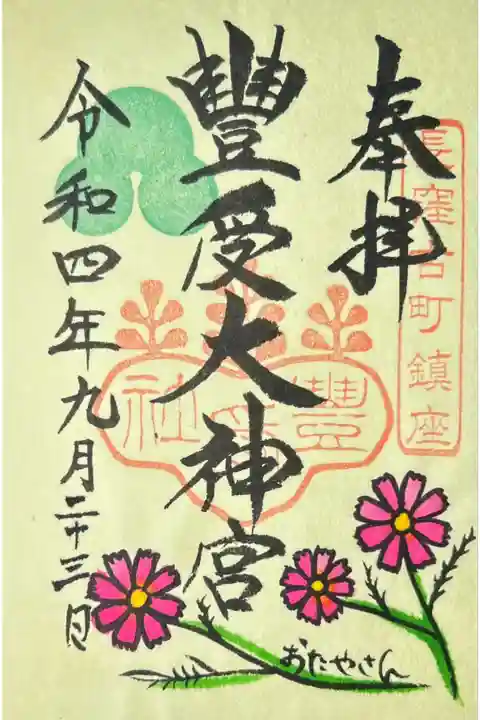 奉拝
長窪古町鎮座
豐受大神宮
令和四年九月二十三日
おたやさん